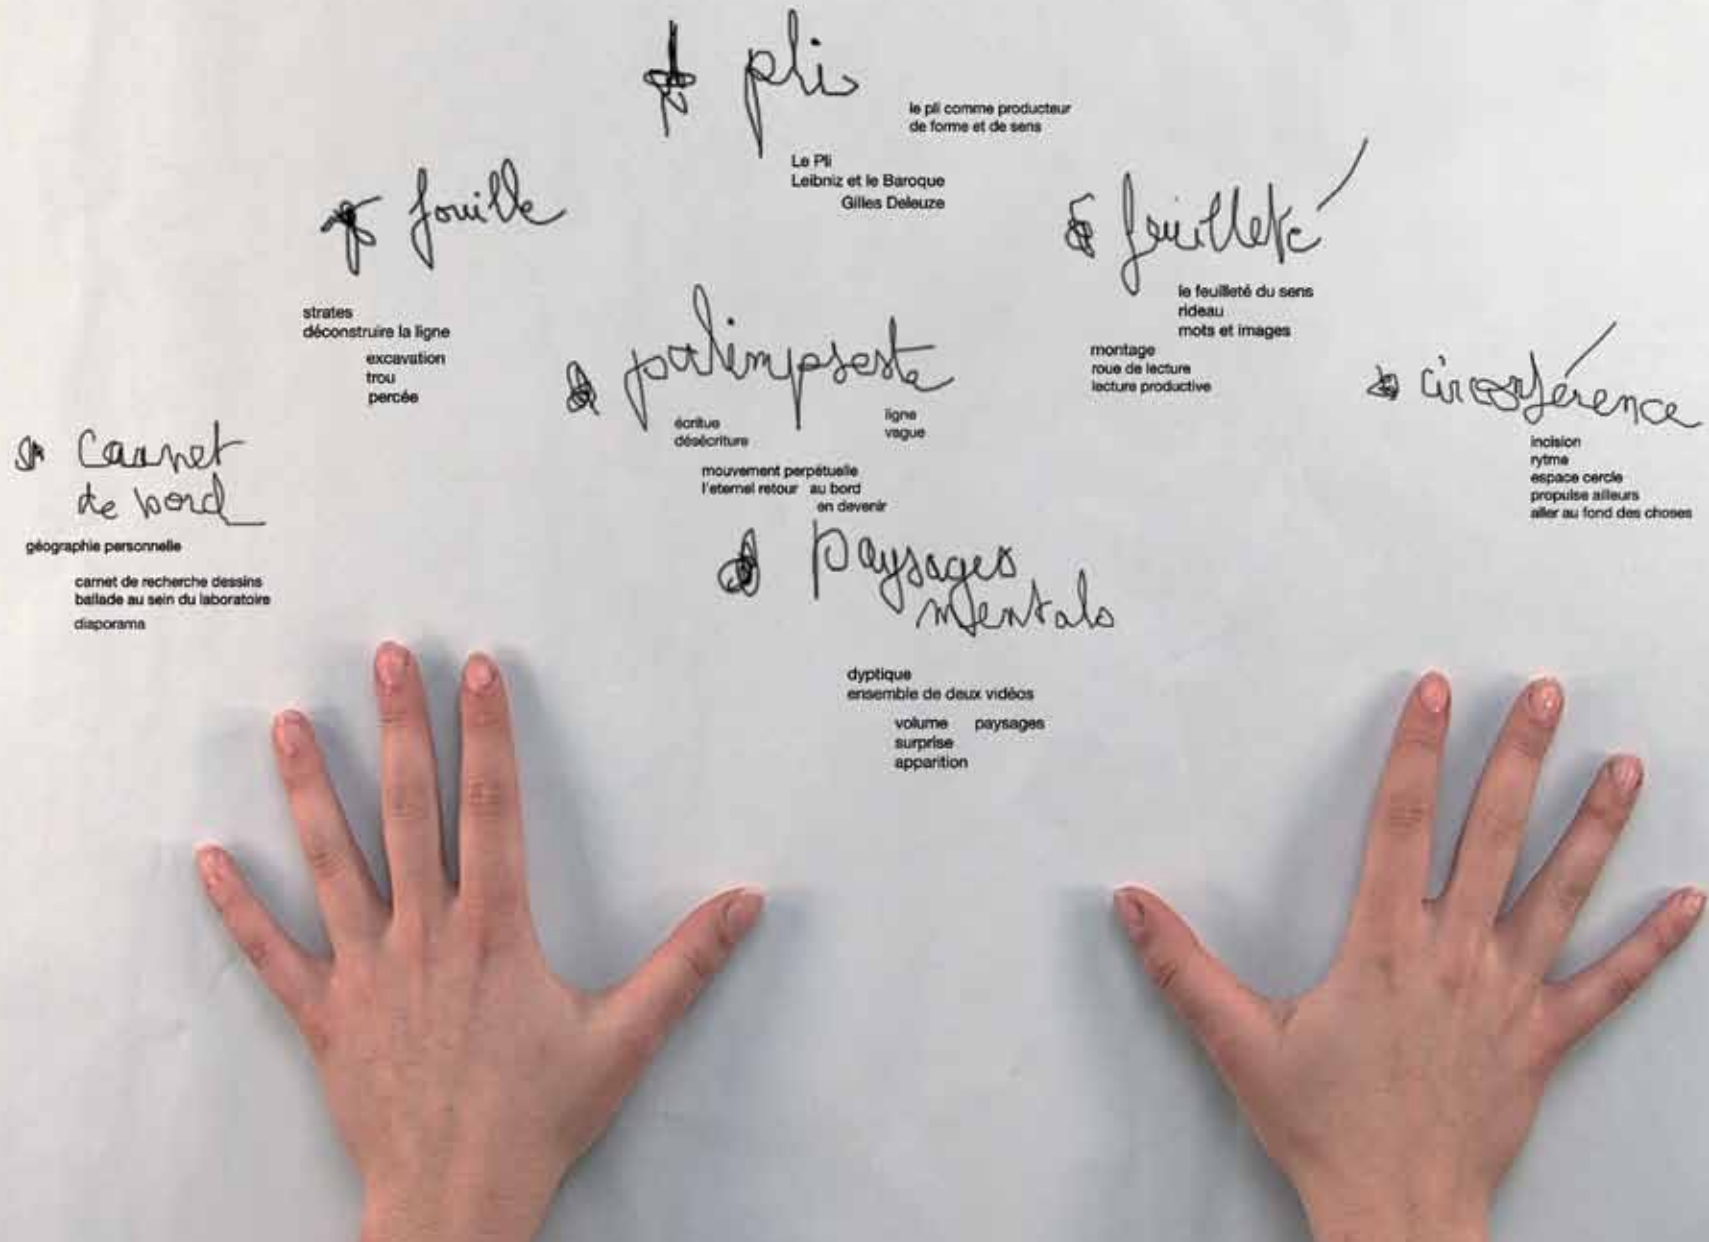 pli
le pli comme producteur
de forme et de sens
Le Pli
Leibniz et le Baroque
Gilles Deleuze
fouille
strates
déconstruire la ligne
excavation
trou
percée
feuilleté
le feuilleté du sens
rideau
mots et images
montage
roue de lecture
lecture productive
palimpseste
écritue
désécriture
ligne
vague
mouvement perpétuelle
l'eternel retour au bord
en devenir
circonférence
incision
rytme
espace cercle
propulse ailleurs
aller au fond des choses
carnet
de bord
géographie personnelle
carnet de recherche dessins
ballade au sein du laboratoire
diaporama
paysages
mentals
dyptique
ensemble de deux vidéos
volume paysages
surprise
apparition